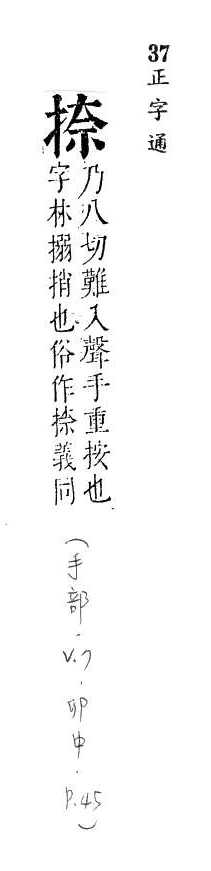 37 正字通
捺 乃八切難入聲手重按也
字林搦捎也俗作捺義同
(手部·V.7·卯中·P.45)